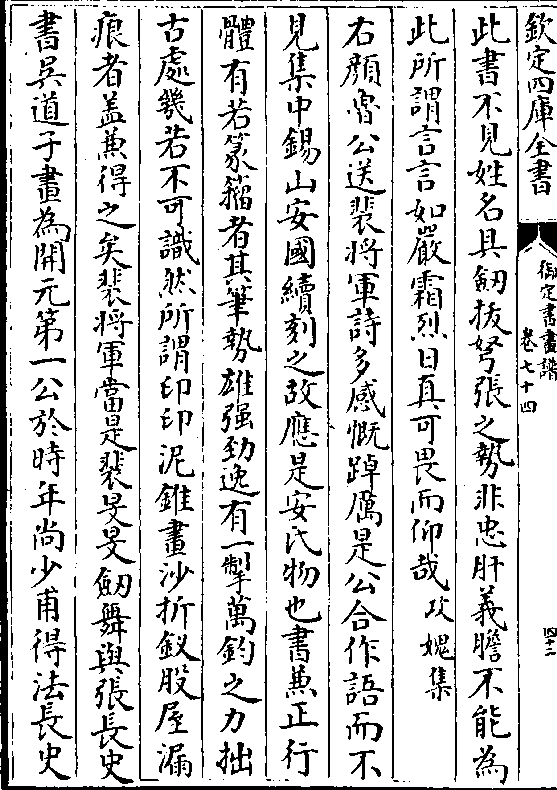 欽定四庫全書
御定書畫譜
卷七十四
四十二
此書不見姓名具劒拔弩張之勢非忠肝義膽不能為
此所謂言言如嚴霜烈日真可畏而仰哉攻媿集
右顔魯公送裴將軍詩多感慨踔厲是公合作語而不
見集中錫山安國續刻之故應是安氏物也書兼正行
體有若篆籀者其筆勢雄强勁逸有一掣萬鈞之力拙
古處幾若不可識然所謂印印泥錐畫沙折釵股屋漏
痕者盖兼得之矣裴將軍當是裴旻旻劒舞與張長史
書吳道子畫為開元第一公於時年尚少甫得法長史